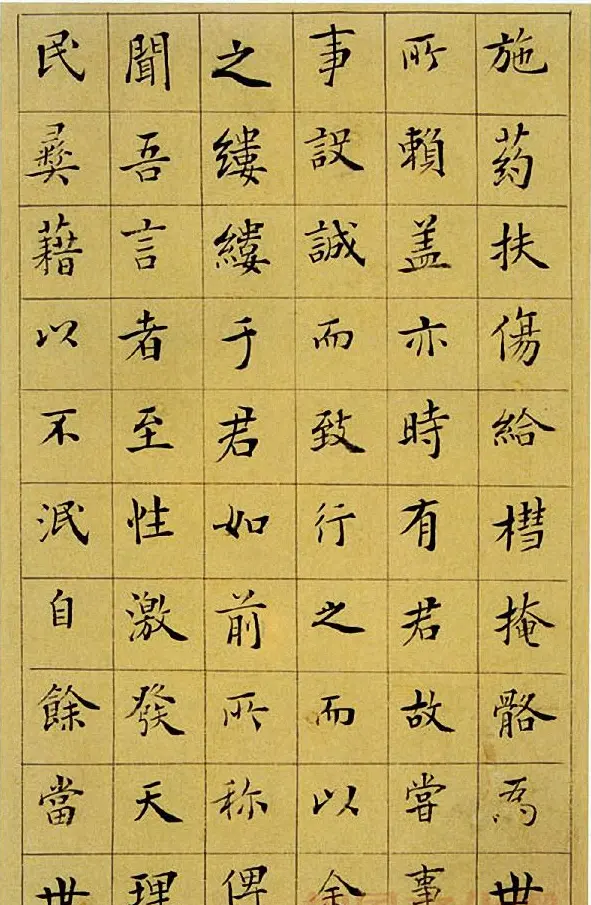 施药扶傷給槥掩骼爲世
所賴盖亦時有君故嘗事
事設誠而致行之而以余
之縷縷于君如前所称俾
聞吾言者至性激發天理
民彝藉以不泯自餘當世